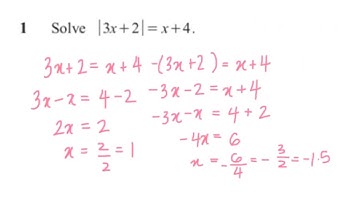 1 Solve |3x+2| = x+4.
3x+2 = x+4
3x-x = 4-2
2x = 2
x = 2/2 = 1
-(3x+2) = x+4
-3x-2 = x+4
-3x-x = 4+2
-4x = 6
x = -6/4 = -3/2 = -1.5